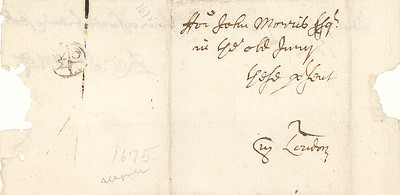 1675
For John Morris Esqr.
in the old Jury
these psent
In London
1675